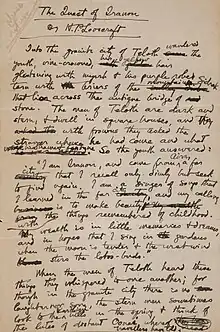 The Quest of Iranon
By H. P. Lovecraft
Into the granite city of Teloth wandered
the youth, vine-crowned, his yellow hair
glistening with myrrh and his purple robe
torn with briers of the mountain Sidrak
that lies across the antique bridge of
stone. The men of Teloth are dark and
stern, & dwell in square houses, and
with frowns they asked the
stranger whence he had come and what
So the youth answered:
"I am Iranon, and come from Aira, a far
city that I recall only dimly but seek
to find again. I am a singer of songs that
I learned in the far city, and my calling
is to make beauty
with the things remembered of childhood.
My wealth is in little memories & dreams,
and in hopes that I sing in gardens
when the moon is tender and the west wind
stirs the lotos-buds."
When the men of Teloth heard these
things they whispered to one another; for
though in the granite city there is no
laughter or song, the stern men sometimes
look to the hills in the spring & think of
the lutes of distant Oonai